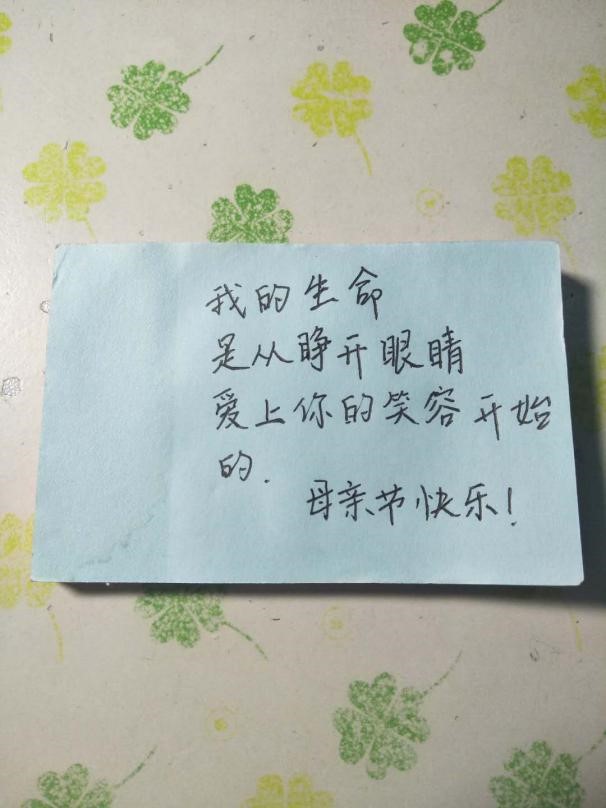 我的生命
是从睁开眼睛
爱上你的笑容开始
的.
母亲节快乐!